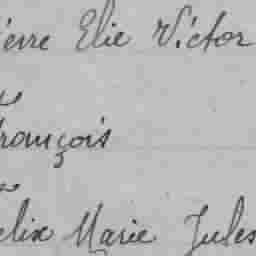 ierre Elie Victor
rançois
elix Marie Jules